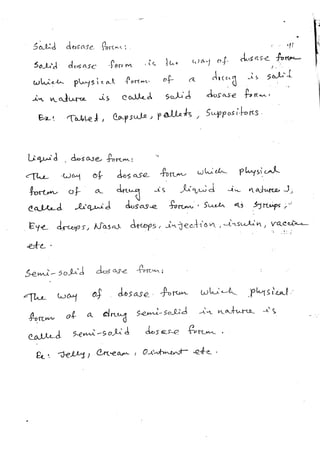 Solid dosase form:
Solid dosase form is the way of dosase form
which physical form of a drug is solid
in nature is called solid dosase form.
Ex: Tabled, Capsule, pallets, Suppositons.
Liquid dosase form:
The way of dosase form which physical
form of a drug is liquid in nature J,
called liquid dosase form. Such as Syrups,
Eye drops, Nasal drops, injection, insulin, vaccine
etc.
Semi-solid dosase form:
The way of dosase form which physical
form of a drug semi-solid in nature is
called semi-solid dosese form.
Ex: Jelly, Cream, Ointment etc.